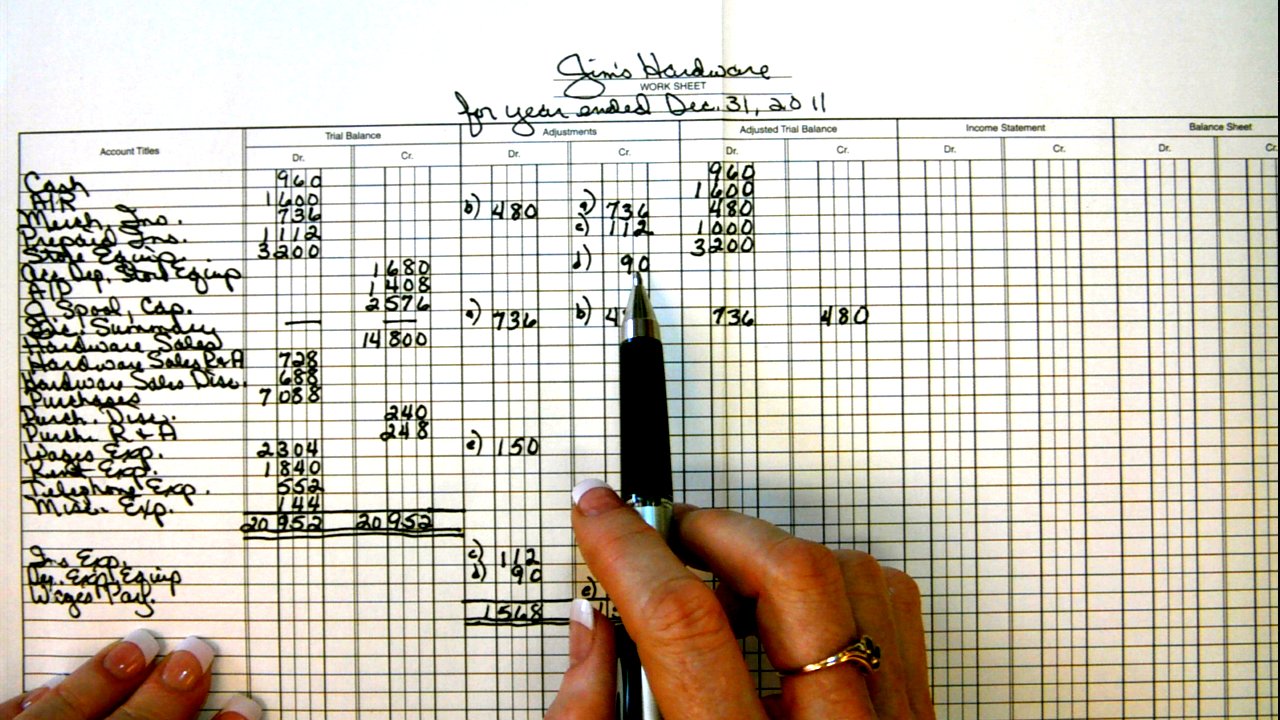 Jim's Hardware
WORK SHEET
for year ended Dec. 31, 2011
Account Titles Trial Balance Adjustments Adjusted Trial Balance Income Statement Balance Sheet
Dr. Cr. Dr. Cr. Dr. Cr. Dr. Cr. Dr. Cr.
Cash 960 960
A/R 1600 1600
Merch. Ins. 736 b) 480 a) 736 480
Prepaid Ins. 1112 c) 112 1000
Store Equip. 3200 3200
Acc. Dep. Store Equip 1680 d) 90
A/P 1408
J. Spool, Cap. 2576
Inc. Summary — — a) 736 b) 736 480
Hardware Sales 14800
Hardware Sales R&A 728
Hardware Sales Disc. 688
Purchases 7088
Purch. Disc. 240
Purch. R & A 248
Wages Exp. 2304 e) 150
Rent Exp. 1840
Telephone Exp. 552
Misc. Exp. 144
20952 20952
Ins. Exp. c) 112
Dep. Exp. Equip d) 90
Wages Pay. e)
1568